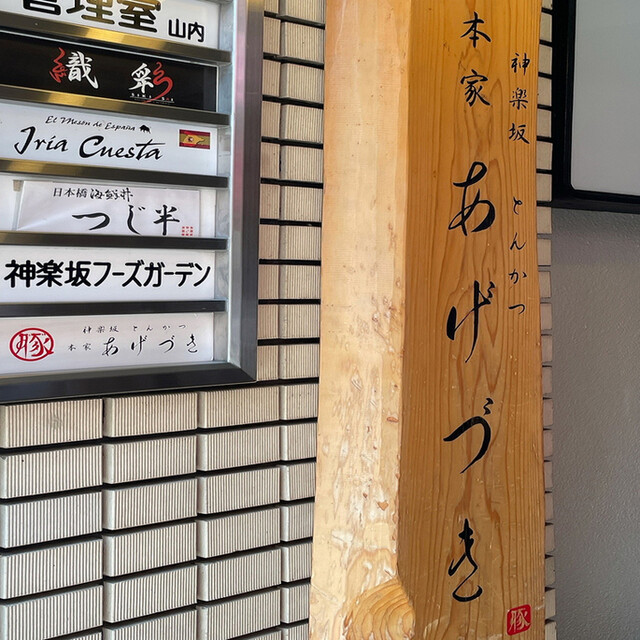 管理室 山内
織彩
El Mesón de España
Iria Cuesta
日本橋海鮮丼
つじ半
神楽坂フーズガーデン
豚
神楽坂 とんかつ
本家 あげづき
神楽坂 とんかつ
本家 あげづき
豚